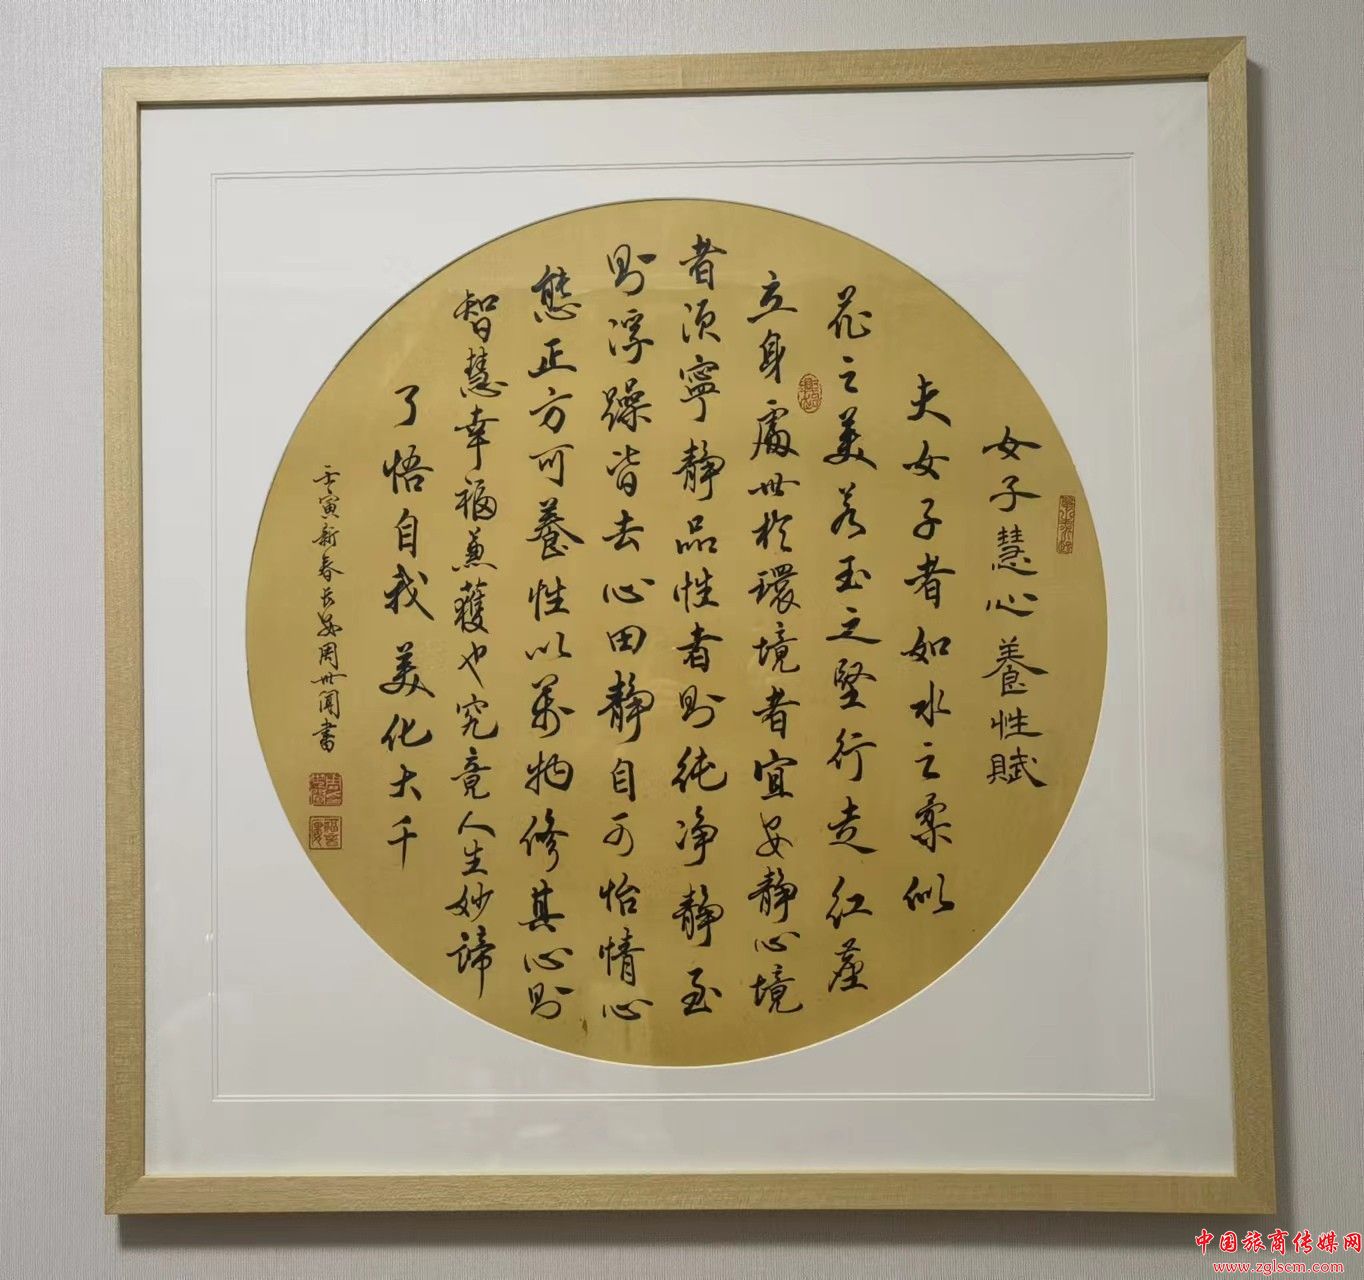 女子慧心養性賦
夫女子者如水之柔似
花之美若玉之堅行走紅塵
立身處世於環境者宜安靜心境
者須寧靜品性者則純净靜至
則浮躁皆去心田靜自可怡情心
態正方可養性以萬物修其心則
智慧幸福兼獲也究竟人生妙諦
了悟自我美化大千
壬寅新春長安周世聞書
中国旅商传媒网
www.zglscm.com